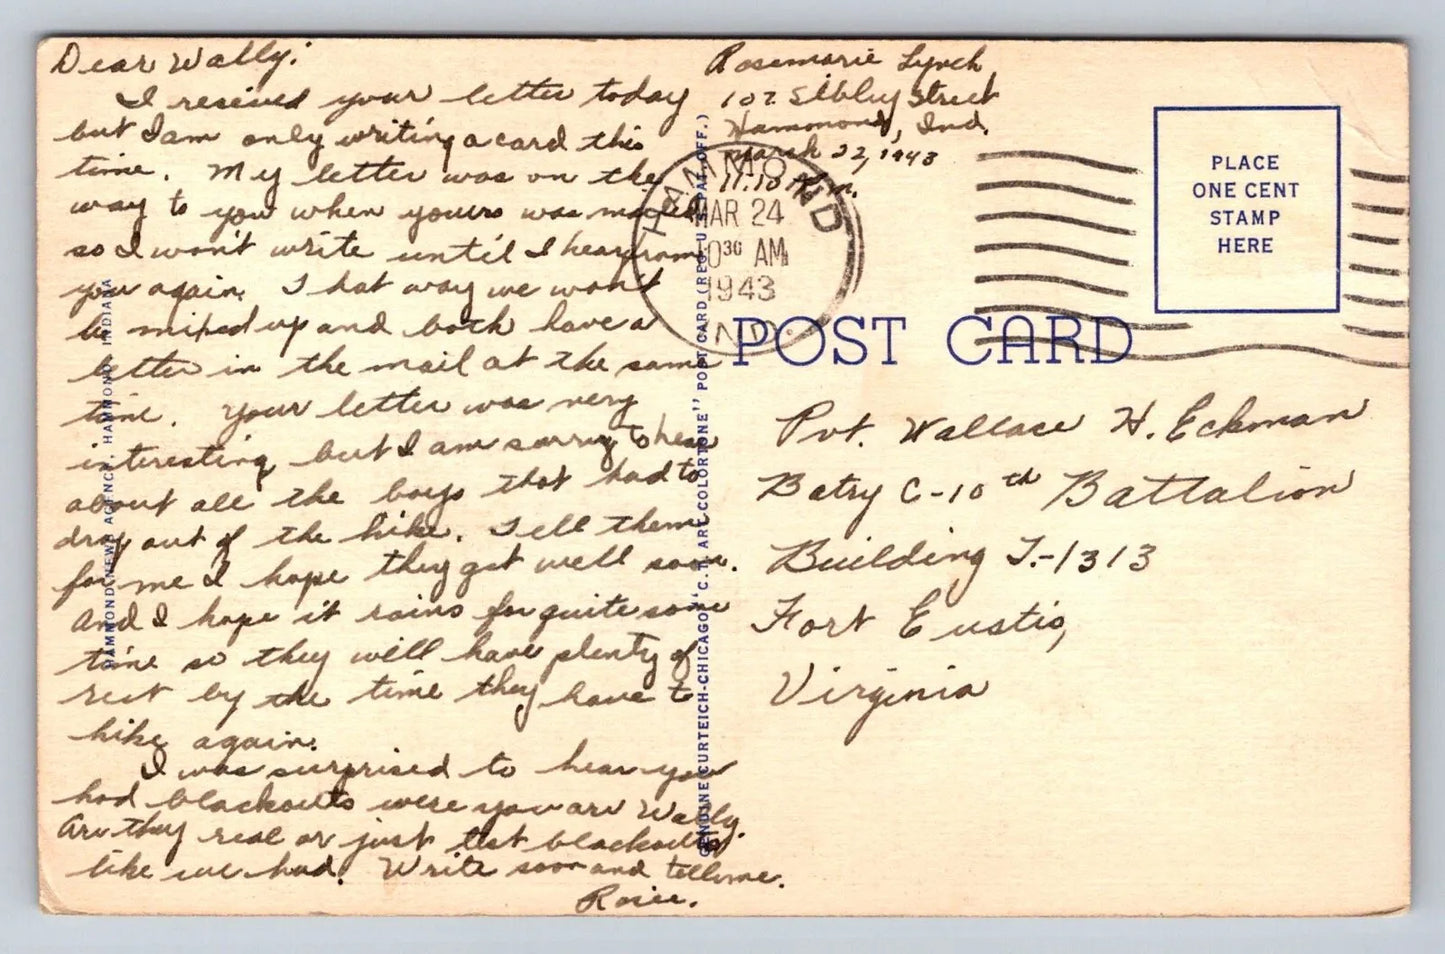 Dear Wally:
I received your letter today
but I am only writing a card this
time. My letter was on the
way to you when yours was mailed
so I won't write until I hear from
you again. That way we won't
be mixed up and both have a
letter in the mail at the same
time. Your letter was very
interesting but I am sorry to hear
about all the boys that had to
drop out of the hike. Tell them
for me I hope they get well soon.
And I hope it rains for quite some
time so they will have plenty of
rest by the time they have to
hike again.
I was surprised to hear you
had blackouts were you are Wally.
Are they real or just test blackouts
like we had. Write soon and tell me.
Rosie.
HAMMOND NEWS AGENCY, HAMMOND, INDIANA
GENUINE CURTEICH-CHICAGO "C.T. ART-COLORTONE" POST CARD (REG. U.S. PAT. OFF.)
Rosemarie Lynch
107 Sibley Street
Hammond, Ind.
March 22, 1943
11:10 A.m.
HAMMOND
MAR 24
1030 AM
1943
IND.
PLACE
ONE CENT
STAMP
HERE
POST CARD
Pvt. Wallace H. Eckman
Batry C-10th Battalion
Building T.-1313
Fort Eustis,
Virginia